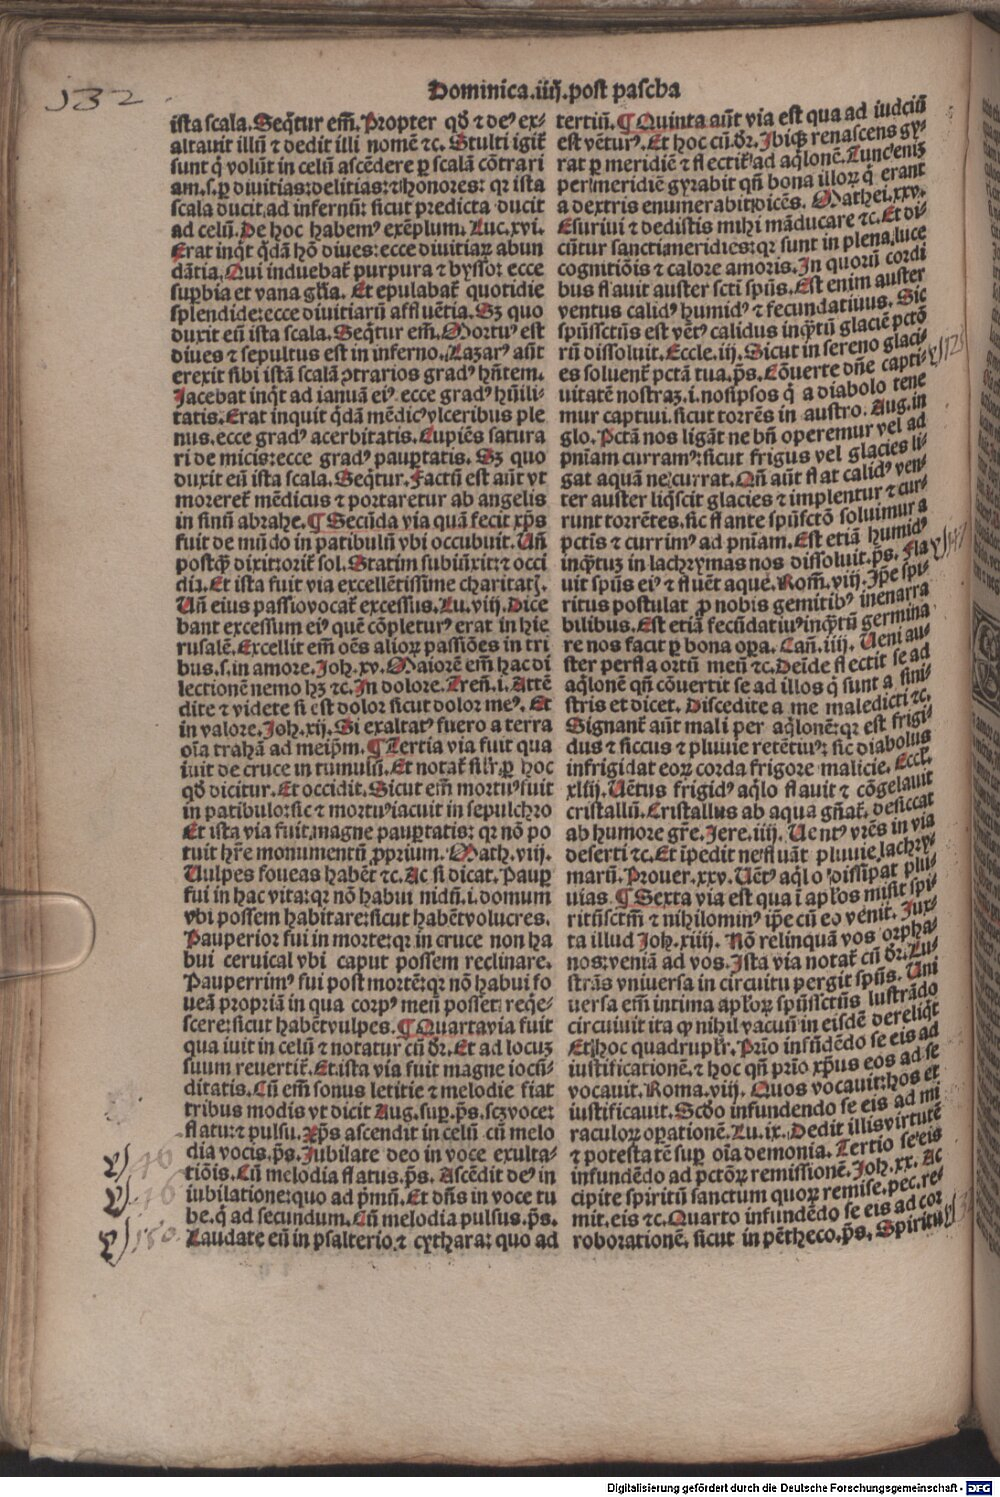 132
Dominica.iiij.post pascha
ista scala. Seq̃tur em̃. Propter qđ ⁊ deꝰ ex-
altauit illũ ⁊ dedit illi nomẽ ⁊c. Stulti igit̃
sunt q̃ volũt in celũ ascẽdere ꝑ scalã cõtrari
am.s.ꝑ diuitias: delitias: ⁊ honores: qꝛ ista
scala ducit ad infernũ: sicut predicta ducit
ad celũ. De hoc habemꝰ exẽplum. Luc.xvi.
Erat inq̃t q̃dã hõ diues: ecce diuitiaꝝ abun
dãtia. Qui induebat̃ purpura ⁊ bysso: ecce
suꝑbia et vana gl̃ia. Et epulabat̃ quotidie
splendide: ecce diuitiarũ affluẽtia. Sꝫ quo
duxit eũ ista scala. Seq̃tur em̃. Mortuꝰ est
diues ⁊ sepultus est in inferno. Lazarꝰ aũt
erexit sibi istã scalã ↄtrarios gradꝰ hñtem.
Jacebat inq̃t ad ianuã eiꝰ ecce gradꝰ hũili-
tatis. Erat inquit q̃dã mẽdicꝰ vlceribus ple
nus. ecce gradꝰ acerbitatis. Cupiẽs satura
ri de micis: ecce gradꝰ pauꝑtatis. Sꝫ quo
duxit eũ ista scala. Seq̃tur. Factũ est aũt vt
moreret̃ mẽdicus ⁊ portaretur ab angelis
in sinũ abrahe. ¶ Secũda via quã fecit xp̃s
fuit de mũdo in patibulũ vbi occubuit. Uñ
postq̃ dixit: orit̃ sol. Statim subiũxit: ⁊ occi
dit. Et ista fuit via excellẽtissime charitatꝭ.
Uñ eius passio vocat̃ excessus. Lu.viij. Dice
bant excessum eiꝰ quẽ cõpleturꝰ erat in hie
rusalẽ. Excellit em̃ oẽs alioꝝ passiões in tri
bus.s.in amore. Joh.xv. Maiorẽ em̃ hac di
lectionẽ nemo hꝫ ⁊c. In dolore. Treñ.i. Attẽ
dite ⁊ videte si est dolor sicut dolor meꝰ. Et
in valore. Joh.xij. Si exaltatꝰ fuero a terra
oĩa trahã ad meip̃m. ¶ Tertia via fuit qua
iuit de cruce in tumulũ. Et notat̃ sil̃r ꝑ hoc
qđ dicitur. Et occidit. Sicut em̃ mortuꝰ fuit
in patibulo: sic ⁊ mortuꝰ iacuit in sepulchro
Et ista via fuit magne pauꝑtatis: qꝛ nõ po
tuit hr̃e monumentũ ꝓprium. Math.viij.
Uulpes foueas habẽt ⁊c. Ac si dicat. Pauꝑ
fui in hac vita: qꝛ nõ habui nidũ.i.domum
vbi possem habitare: sicut habẽt volucres.
Pauperior fui in morte: qꝛ in cruce non ha
bui ceruical vbi caput possem reclinare.
Pauperrimꝰ fui post mortẽ: qꝛ nõ habui fo
ueã propriã in qua corpꝰ meũ posset req̃e-
scere: sicut habẽt vulpes. ¶ Quarta via fuit
qua iuit in celũ ⁊ notatur cũ dr̃. Et ad locuꝫ
suum reuertit̃. Et ista via fuit magne iocũ-
ditatis. Cũ em̃ sonus letitie ⁊ melodie fiat
tribus modis vt dicit Aug. suꝑ. p̃s. scꝫ voce:
flatu: ⁊ pulsu. Xp̃s ascendit in celũ cũ melo
dia vocis. p̃s. Jubilate deo in voce exulta-
tiõis. Cũ melodia flatus. p̃s. Ascẽdit deꝰ in
iubilatione: quo ad p̃mũ. Et dñs in voce tu
be. q̃ ad secundum. Cũ melodia pulsus. p̃s.
Laudate eũ in psalterio. ⁊ cythara: quo ad
tertiũ. ¶ Quinta aũt via est qua ad iudiciũ
est vẽturꝰ. Et hoc cũ dr̃. Ibiqꝫ renascens gy-
rat ꝑ meridiẽ ⁊ flectit̃ ad aq̃lonẽ. Tunc eniꝫ
per meridiẽ gyrabit qñ bona illoꝝ q̃ erant
a dextris enumerabit dicẽs. Mathei.xxv.
Esuriui ⁊ dedistis mihi mãducare ⁊c. Et di-
cũtur sancti meridies: qꝛ sunt in plena luce
cognitiõis ⁊ calore amoris. In quorũ cordi
bus flauit auster sc̃ti sp̃us. Est enim auster
ventus calidꝰ humidꝰ ⁊ fecundatiuus. Sic
sp̃ussctũs est vẽtꝰ calidus inq̃tũ glaciẽ pctõ
rũ dissoluit. Eccle.iij. Sicut in sereno glaci-
es soluent̃ pctã tua. p̃s. Cõuerte dñe capti-
uitatẽ nostraꝫ.i.nosipsos q̃ a diabolo tene
mur captiui. sicut torrẽs in austro. Aug. in
glo. Pctã nos ligãt ne bñ operemur vel ad
pñiam curramꝰ: sicut frigus vel glacies li-
gat aquã ne currat. Qñ aũt flat calidꝰ ven-
ter auster liq̃scit glacies ⁊ implentur ⁊ cur-
runt torrẽtes. sic flante sp̃usctõ soluimur a
pctĩs ⁊ currimꝰ ad pñiam. Est etiã humidꝰ
inq̃tuꝫ in lachrymas nos dissoluit. p̃s. Fla
uit sp̃us eiꝰ ⁊ fluẽt aque. Rom̃.viij. Ip̃e spi-
ritus postulat ꝓ nobis gemitibꝰ inenarra
bilibus. Est etiã fecũdatiuꝰ inq̃tũ germina
re nos facit ꝑ bona oꝑa. Cañ.iiij. Ueni au-
ster perfla ortũ meũ ⁊c. Deĩde flectit se ad
aq̃lonẽ qñ cõuertit se ad illos q̃ sunt a sini-
stris et dicet. Discedite a me maledicti ⁊c.
Signant̃ aũt mali per aq̃lonẽ: qꝛ est frigi-
dus ⁊ siccus ⁊ pluuie retẽtiuꝰ: sic diabolus
infrigidat eoꝝ corda frigore malicie. Eccl̃.
xliij. Uẽtus frigidꝰ aq̃lo flauit ⁊ cõgelauit
cristallũ. Cristallus ab aqua gñat̃. desiccat
ab humore gr̃e. Jere.iiij. Uentꝰ vrẽs in via
deserti ⁊c. Et ĩpedit ne fluãt pluuie lachry-
marũ. Prouer.xxv. Uẽtꝰ aq̃lo dissipat plu-
uias. ¶ Sexta via est qua ĩ apl̃os misit spi-
ritũsctm̃ ⁊ nihilominꝰ ip̃e cũ eo venit. Jux-
ta illud Joh.xiiij. Nõ relinquã vos orpha-
nos: veniã ad vos. Ista via notat̃ cũ dr̃. Lu-
strãs vniuersa in circuitu pergit sp̃us. Uni
uersa em̃ intima apl̃oꝝ sp̃ussctũs lustrãdo
circuiuit ita ꝙ nihil vacuũ in eisdẽ dereliq̃t
Et hoc quadruplr̃. Prĩo infũdẽdo se eis ad
iustificationẽ. ⁊ hoc qñ prĩo xp̃us eos ad se
vocauit. Roma.viij. Quos vocauit: hos et
iustificauit. Scđo infundendo se eis ad mi
raculoꝝ oꝑationẽ. Lu.ix. Dedit illis virtutẽ
⁊ potestatẽ suꝑ oĩa demonia. Tertio se eis
infundẽdo ad pctõꝝ remissionẽ. Joh.xx. Ac
cipite spiritũ sanctum quoꝝ remise. pec. re-
mit. eis ⁊c. Quarto infundẽdo se eis ad cor
roborationẽ, sicut in pẽtheco. p̃s. Spiritu
Digitalisierung gefördert durch die Deutsche Forschungsgemeinschaft - DFG